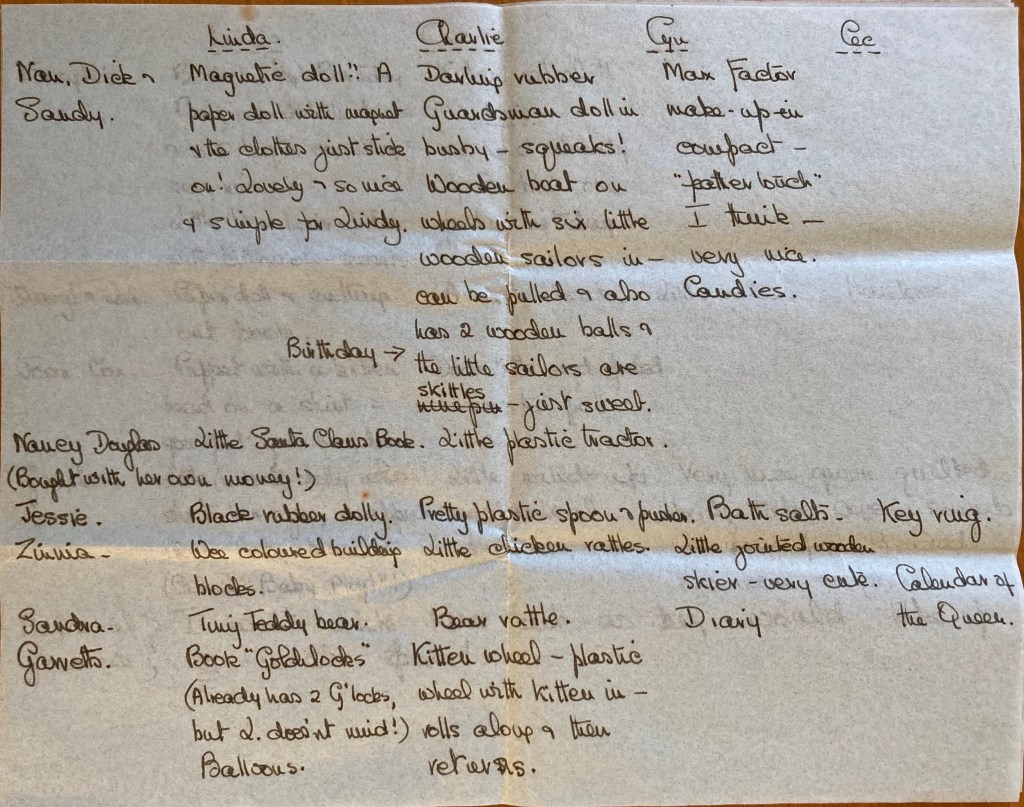 Linda. Charlie Cyn Cec
Nan, Dick & Magnetic doll!! A Darling rubber Max Factor
Sandy. paper doll with magnet Guardsman doll in make-up-in
& the clothes just stick busby - squeaks! compact -
on! Lovely & so nice Wooden boat on "father touch"
& simple for Lindy. wheels with six little I think -
wooden sailors in - very nice.
can be pulled & also Candies.
has 2 wooden balls &
Birthday → the little sailors are
skittles
nine pin - just sweet.
Nancy Douglas Little Santa Claus Book. Little plastic tractor.
(Bought with her own money!)
Jessie. Black rubber dolly. Pretty plastic spoon & pusher. Bath salts - Key ring.
Zinnia - Wee coloured building Little chicken rattles. Little jointed wooden
blocks. skier - very cute. Calendar of
Sandra - Tiny Teddy bear. Bear rattle. Diary the Queen.
Garretts. Book "Goldilocks" Kitten wheel - plastic
(Already has 2 G'locks, wheel with kitten in -
but L. doesn't mind!) rolls along & then
Balloons. returns.